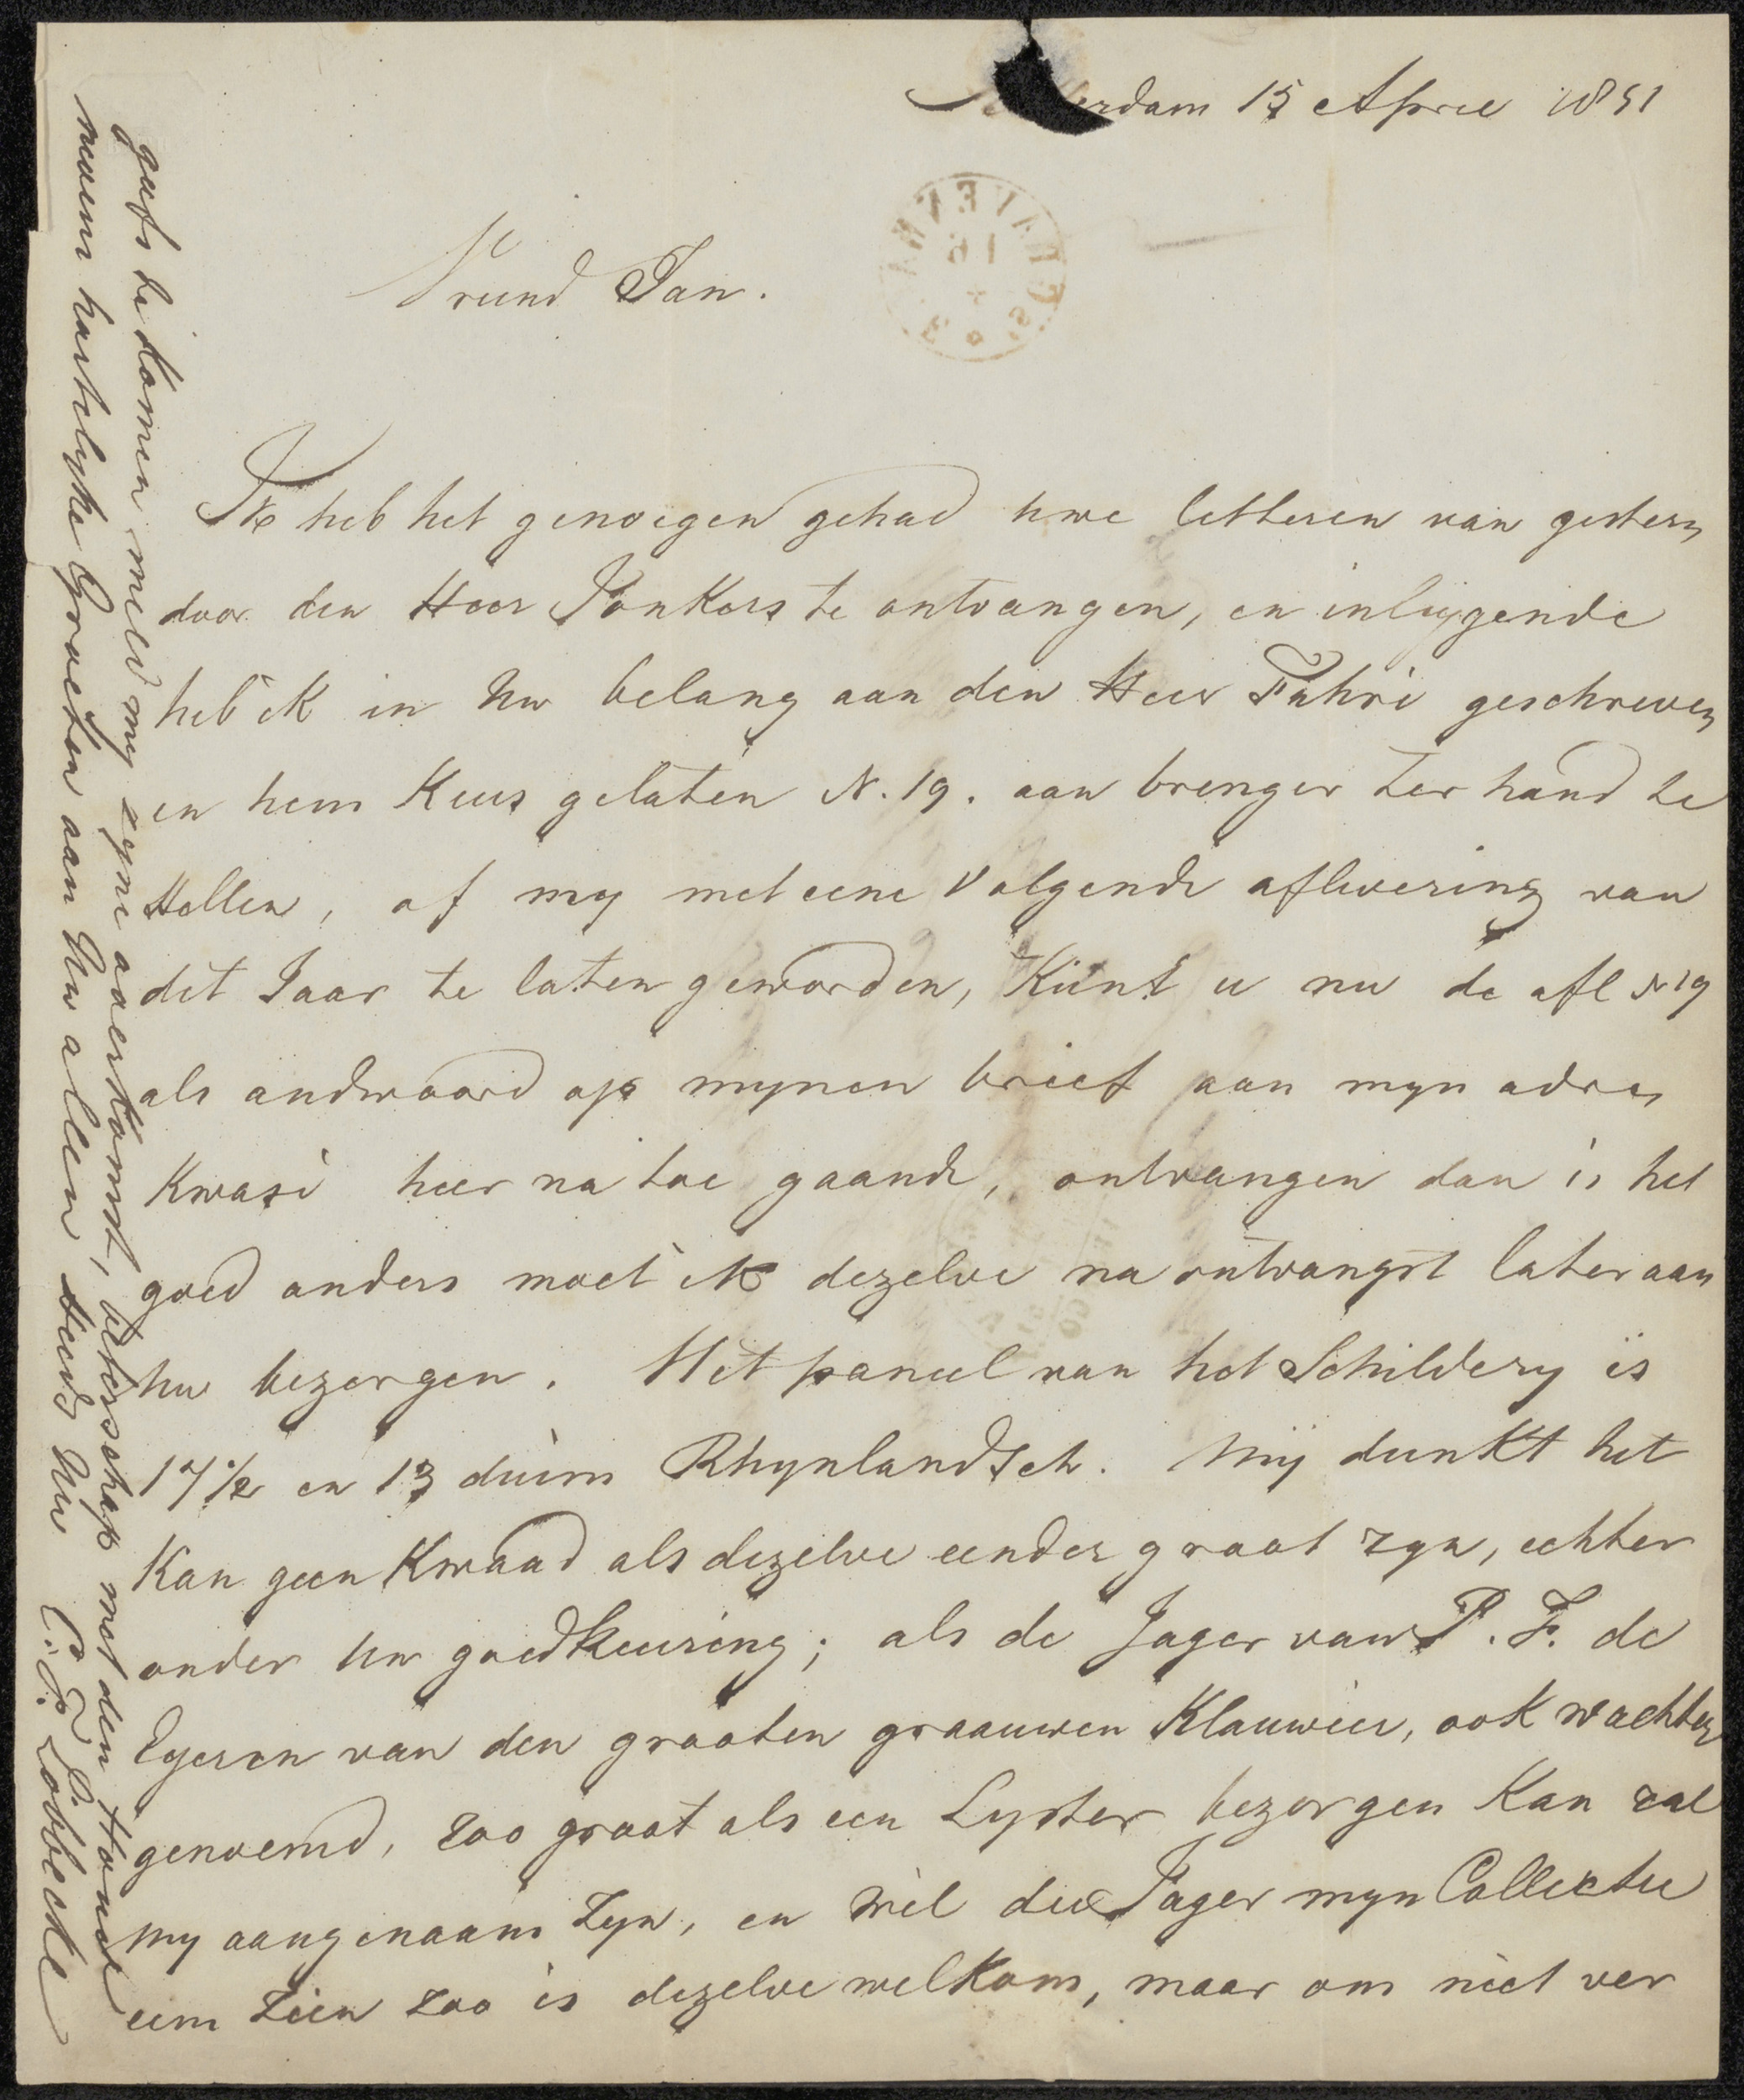 erdam 15 April 1851
Vriend Jan.
Ik heb het genoegen gehad uwe letteren van gistern
door den Heer Jonkers te ontvangen, en inliggende
heb ik in Uw belang aan den Heer Fuhri geschreven
en hem Keus gelaten N. 19. aan brenger ter hand te
stellen, of my met eene volgende aflevering van
dit Jaar te laten geworden, Kunt u nu de afl N 19
als andwoord op mynen brief aan myn adres
Kwasi heer na toe gaande, ontvangen dan is het
goed anders moet ik dezelve na ontvangst later aan
Uw bezorgen. Het paneel van het Schildery is
17 1/2 en 13 duim Rhynlandsch. Mij dunkt het
Kan geen Kwaad als dezelve eender groot zyn, echter
onder Uw goedkeuring; als de Jager van P. F. de
Eyeren van den grooten graauwen Klauwier, ook wachter
genoemd, zoo groot als een Lyster bezorgen Kan zal
my aangenaam zyn, en wil die Jager myn Collectie
eens zien zoo is dezelve welkom, maar om niet ver
geefs te komen meld my zyne aaerkomst, Vaderschap met den Hond
neem hartelyke Groeten aan Uw allen steeds Uw
C. P. Löbbecke